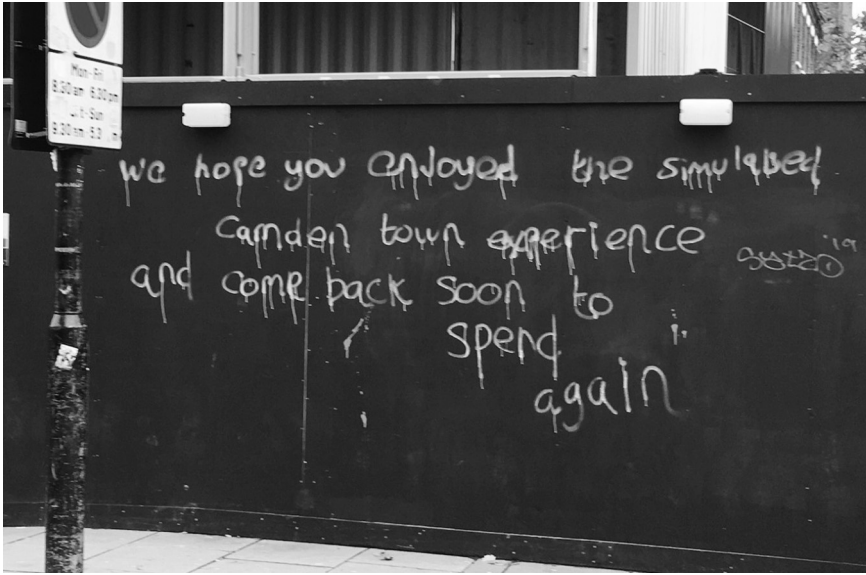 Mon-Fri
8.30am 6.30pm
t-Sun
9.30am-5.3 m
we hope you enjoyed the simulated
camden town experience
and come back soon to
spend
again
'19